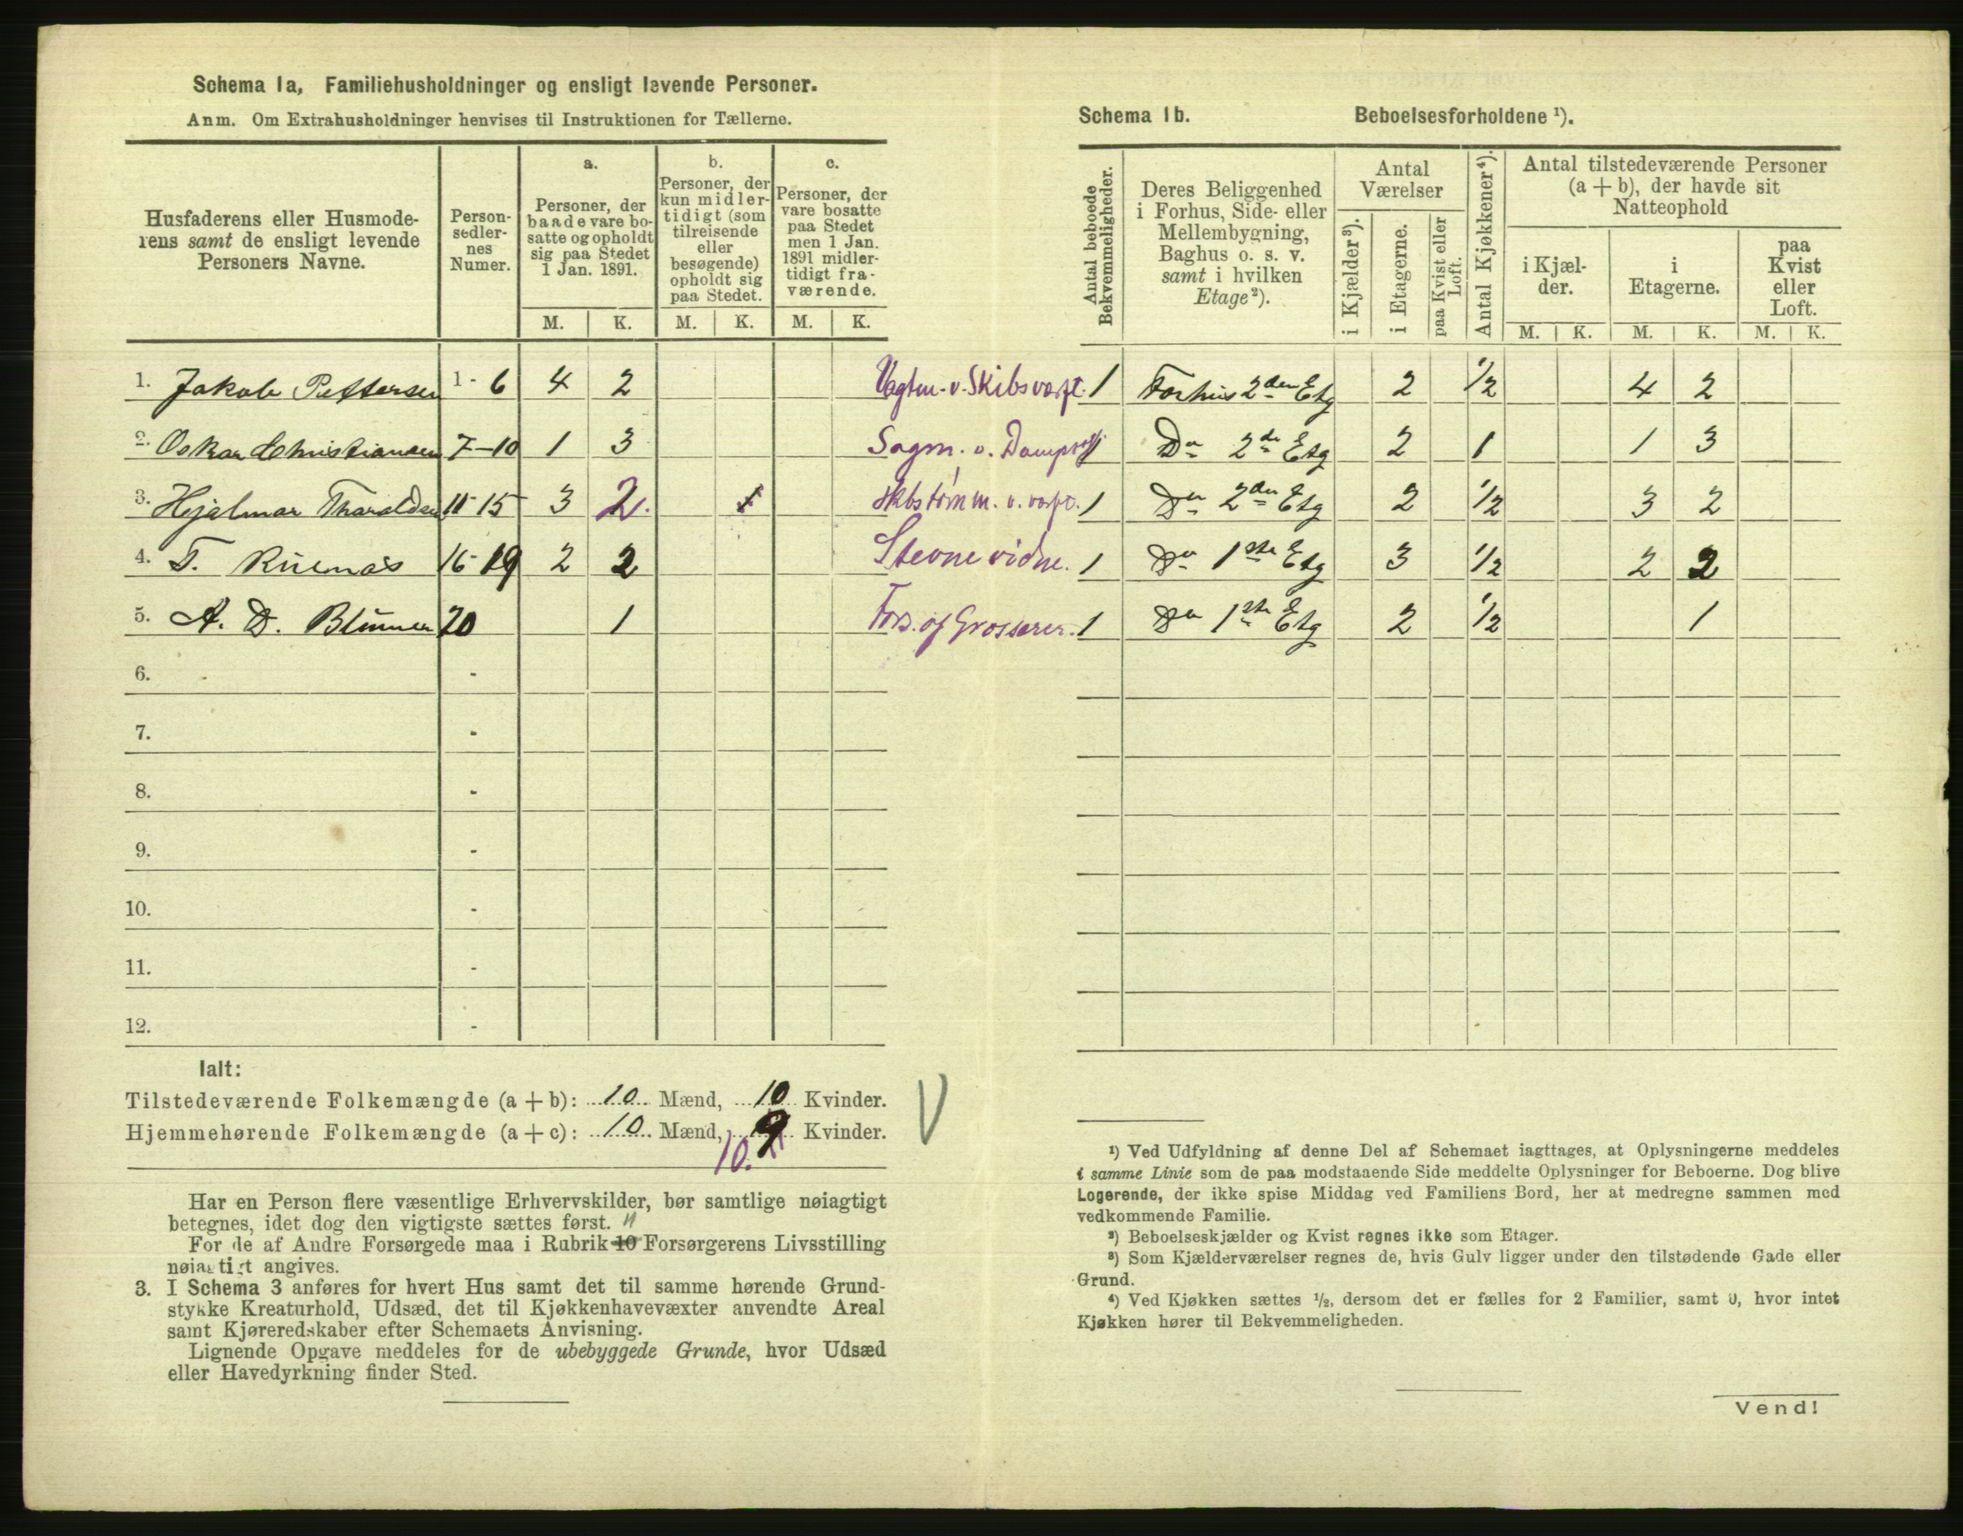 Schema 1a, Familiehusholdninger og ensligt levende Personer.
Anm. Om Extrahusholdninger henvises til Instruktionen for Tællerne.
Husfaderens eller Husmoderens samt de ensligt levende Personers Navne.
Personsedlernes Numer.
a.
Personer, der baade vare bosatte og opholdt sig paa Stedet 1 Jan. 1891.
b.
Personer, der kun midlertidigt (som tilreisende eller besøgende) opholdt sig paa Stedet.
c.
Personer, der vare bosatte paa Stedet men 1 Jan. 1891 midlertidigt fraværende.
M. K. M. K. M. K.
1. Jakob Pettersen 1 - 6 4 2 Vagtm. v. Skibsværft.
2. Oskar Christiansen 7-10 1 3 Sagm. v.
3. Hjalmar Tharaldsen 11-15 3 2. v. værft.
4. T. 16-19 2 2 Stevnevidne.
5. A. D. 20 1 Fors. af Grosserer.
6. -
7. -
8. -
9. -
10. -
11. -
12. -
Ialt:
Tilstedeværende Folkemængde (a + b): 10 Mænd, 10 Kvinder.
Hjemmehørende Folkemængde (a + c): 10 Mænd, 9 Kvinder.
10.
Har en Person flere væsentlige Erhvervskilder, bør samtlige nøiagtigt
betegnes, idet dog den vigtigste sættes først. 11
For de af Andre Forsørgede maa i Rubrik 10 Forsørgerens Livsstilling
nøiagtigt angives.
3. I Schema 3 anføres for hvert Hus samt det til samme hørende Grund-
stykke Kreaturhold, Udsæd, det til Kjøkkenhavevæxter anvendte Areal
samt Kjøreredskaber efter Schemaets Anvisning.
Lignende Opgave meddeles for de ubebyggede Grunde, hvor Udsæd
eller Havedyrkning finder Sted.
Schema 1b. Beboelsesforholdene ¹).
Antal beboede Bekvemmeligheder.
Deres Beliggenhed i Forhus, Side- eller Mellembygning, Baghus o. s. v. samt i hvilken Etage ²).
Antal Værelser
i Kjælder ³).
i Etagerne.
paa Kvist eller Loft.
Antal Kjøkkener ⁴).
Antal tilstedeværende Personer (a + b), der havde sit Natteophold
i Kjælder.
i Etagerne.
paa Kvist eller Loft.
M. K. M. K. M. K.
1 Forhus 2den Etg 2 1/2 4 2
1 Do 2de Etg 2 1 1 3
1 Do 2den Etg 2 1/2 3 2
1 Do 1ste Etg 3 1/2 2 2
1 Do 1ste Etg 2 1/2 1
¹) Ved Udfyldning af denne Del af Schemaet iagttages, at Oplysningerne meddeles
i samme Linie som de paa modstaaende Side meddelte Oplysninger for Beboerne. Dog blive
Logerende, der ikke spise Middag ved Familiens Bord, her at medregne sammen med
vedkommende Familie.
²) Beboelseskjælder og Kvist regnes ikke som Etager.
³) Som Kjælderværelser regnes de, hvis Gulv ligger under den tilstødende Gade eller
Grund.
⁴) Ved Kjøkken sættes ½, dersom det er fælles for 2 Familier, samt 0, hvor intet
Kjøkken hører til Bekvemmeligheden.
Vend!